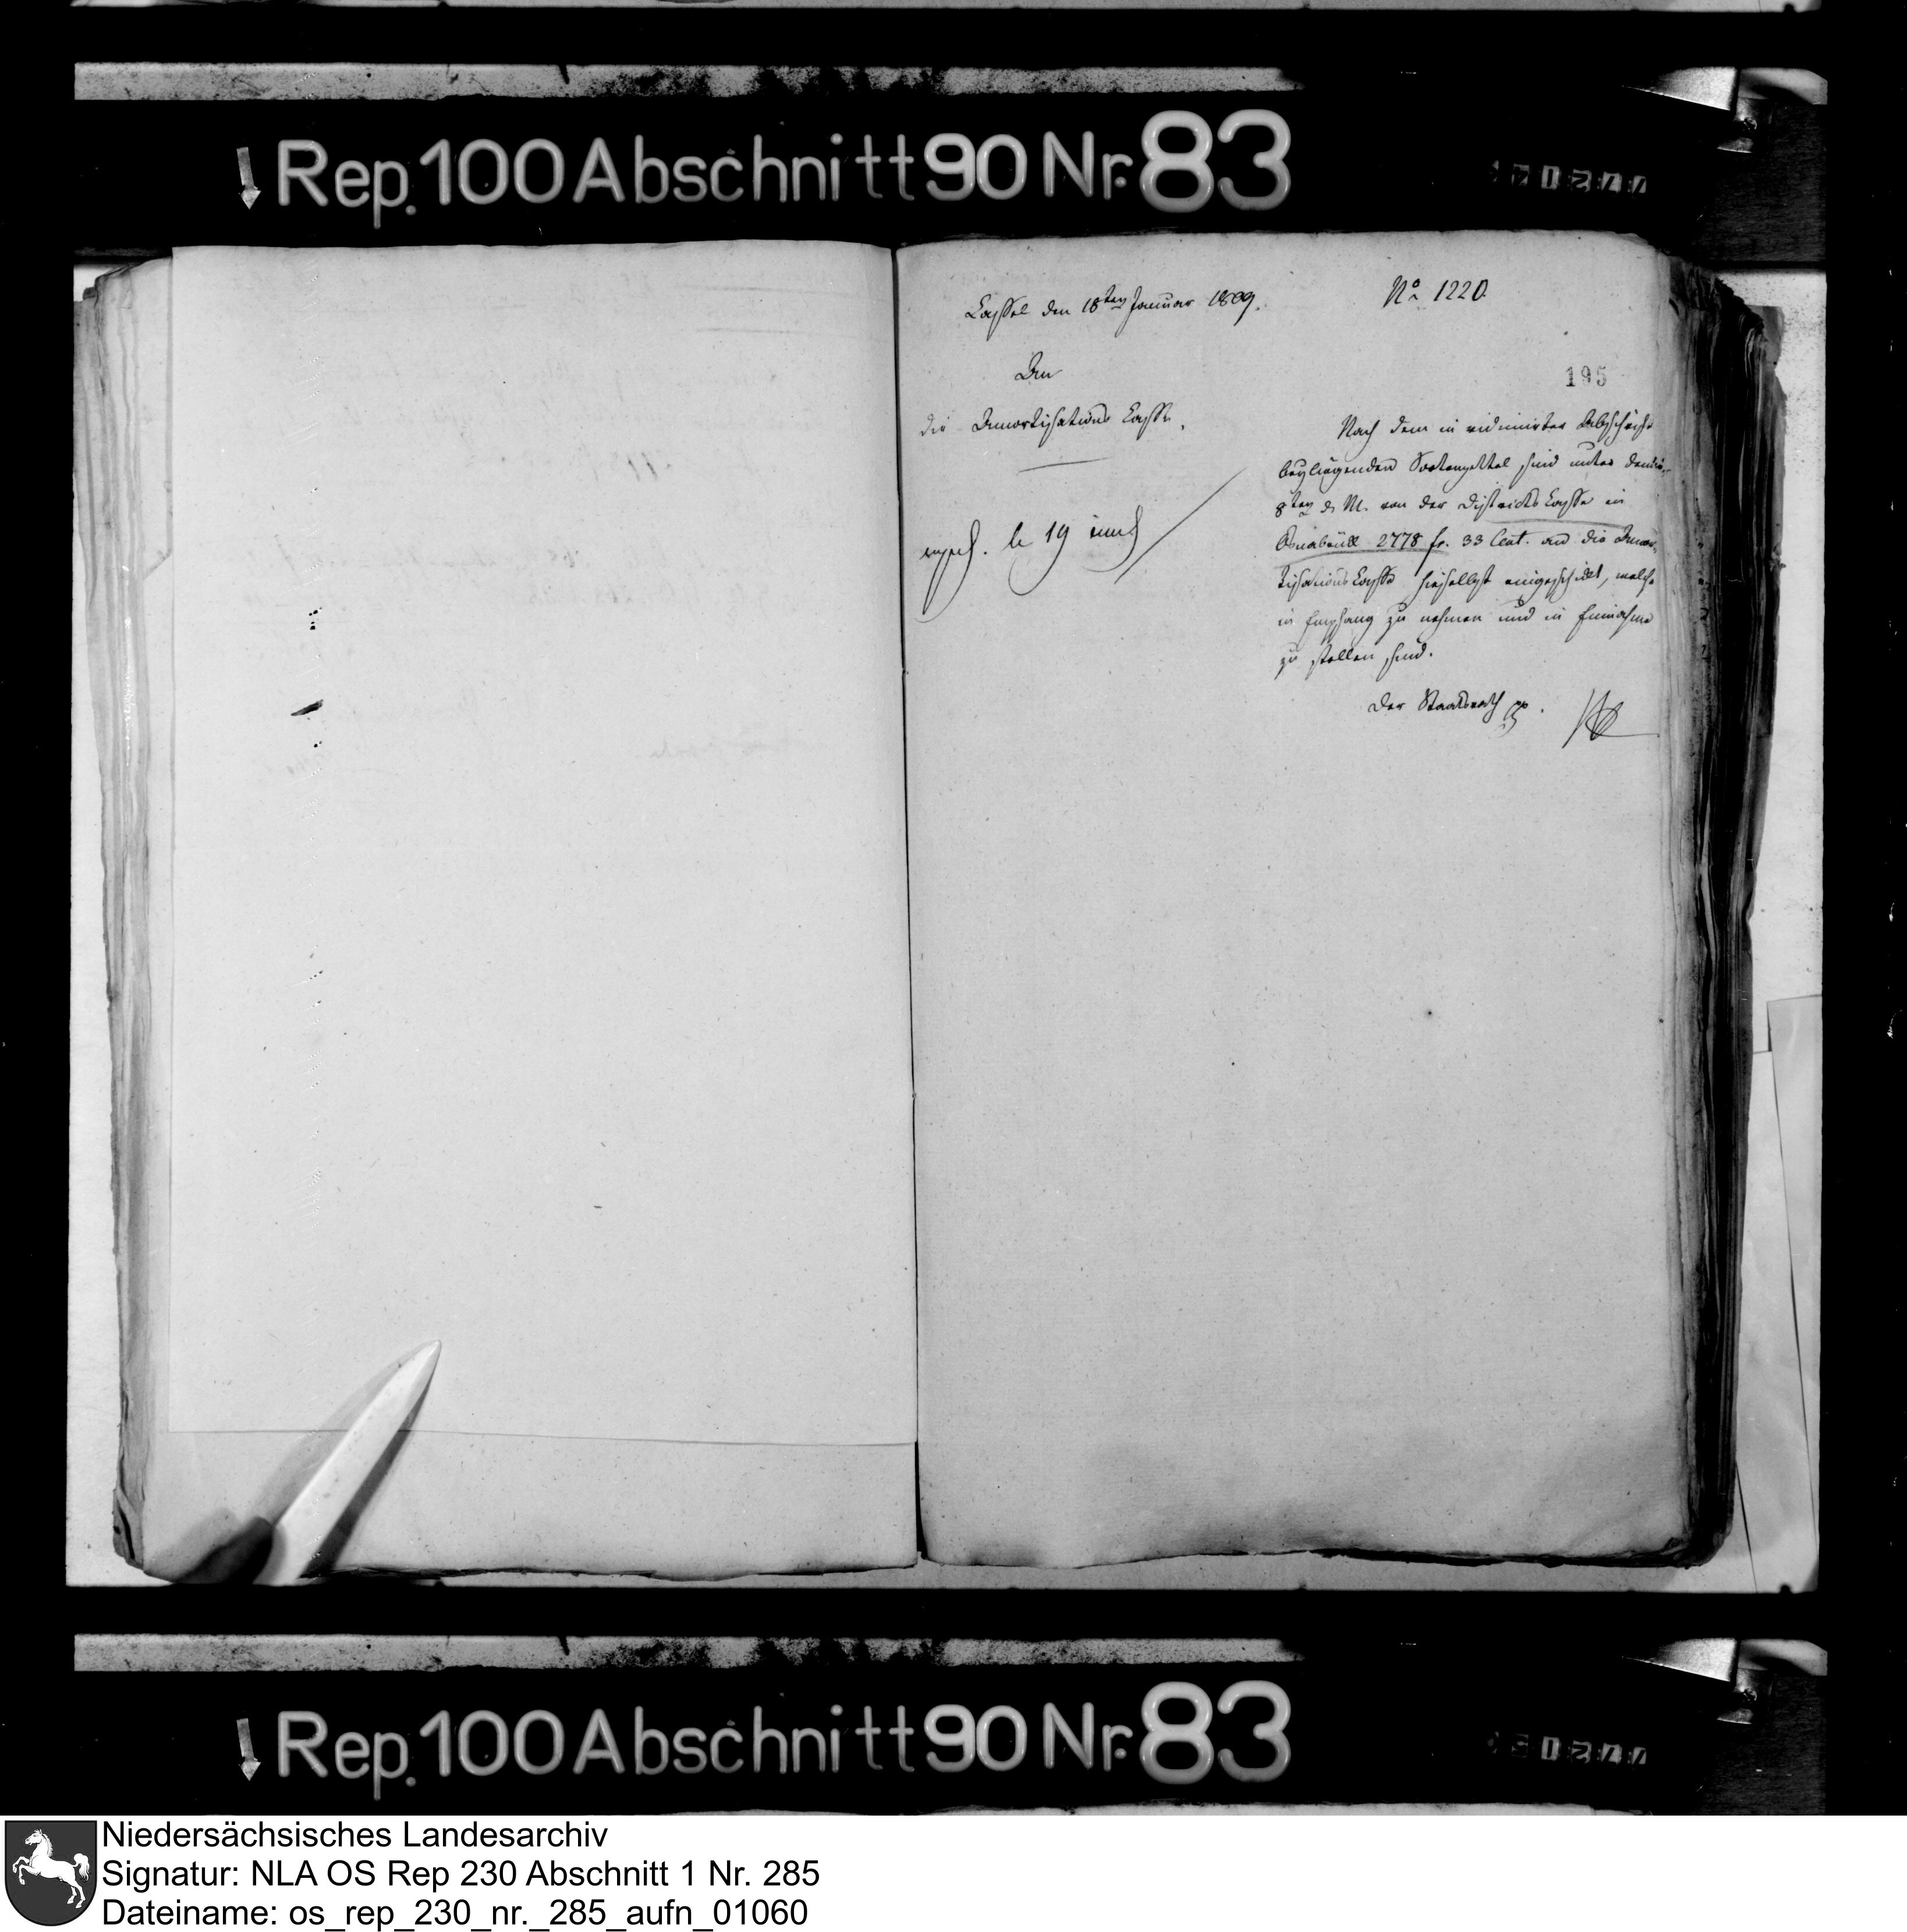 Rep. 100 Abschnitt 90 Nr. 83
Cassel den 18ten Januar 1809.
No. 1220
195
An
die Amortisations Casse.
exped. le 19
Nach dem in vidimirter Abschrift
beyliegenden Sortenzettel sind unter dem
8ten d. M. von der Districts Casse in
Osnabrück 2778 fr. 33 Cent. an die Amor-
tisations Casse hieselbst eingeschickt, welche
in Empfang zu nehmen und in Einnahme
zu stellen sind.
Der Staatsrath
Rep. 100 Abschnitt 90 Nr. 83
Niedersächsisches Landesarchiv
Signatur: NLA OS Rep 230 Abschnitt 1 Nr. 285
Dateiname: os_rep_230_nr._285_aufn_01060